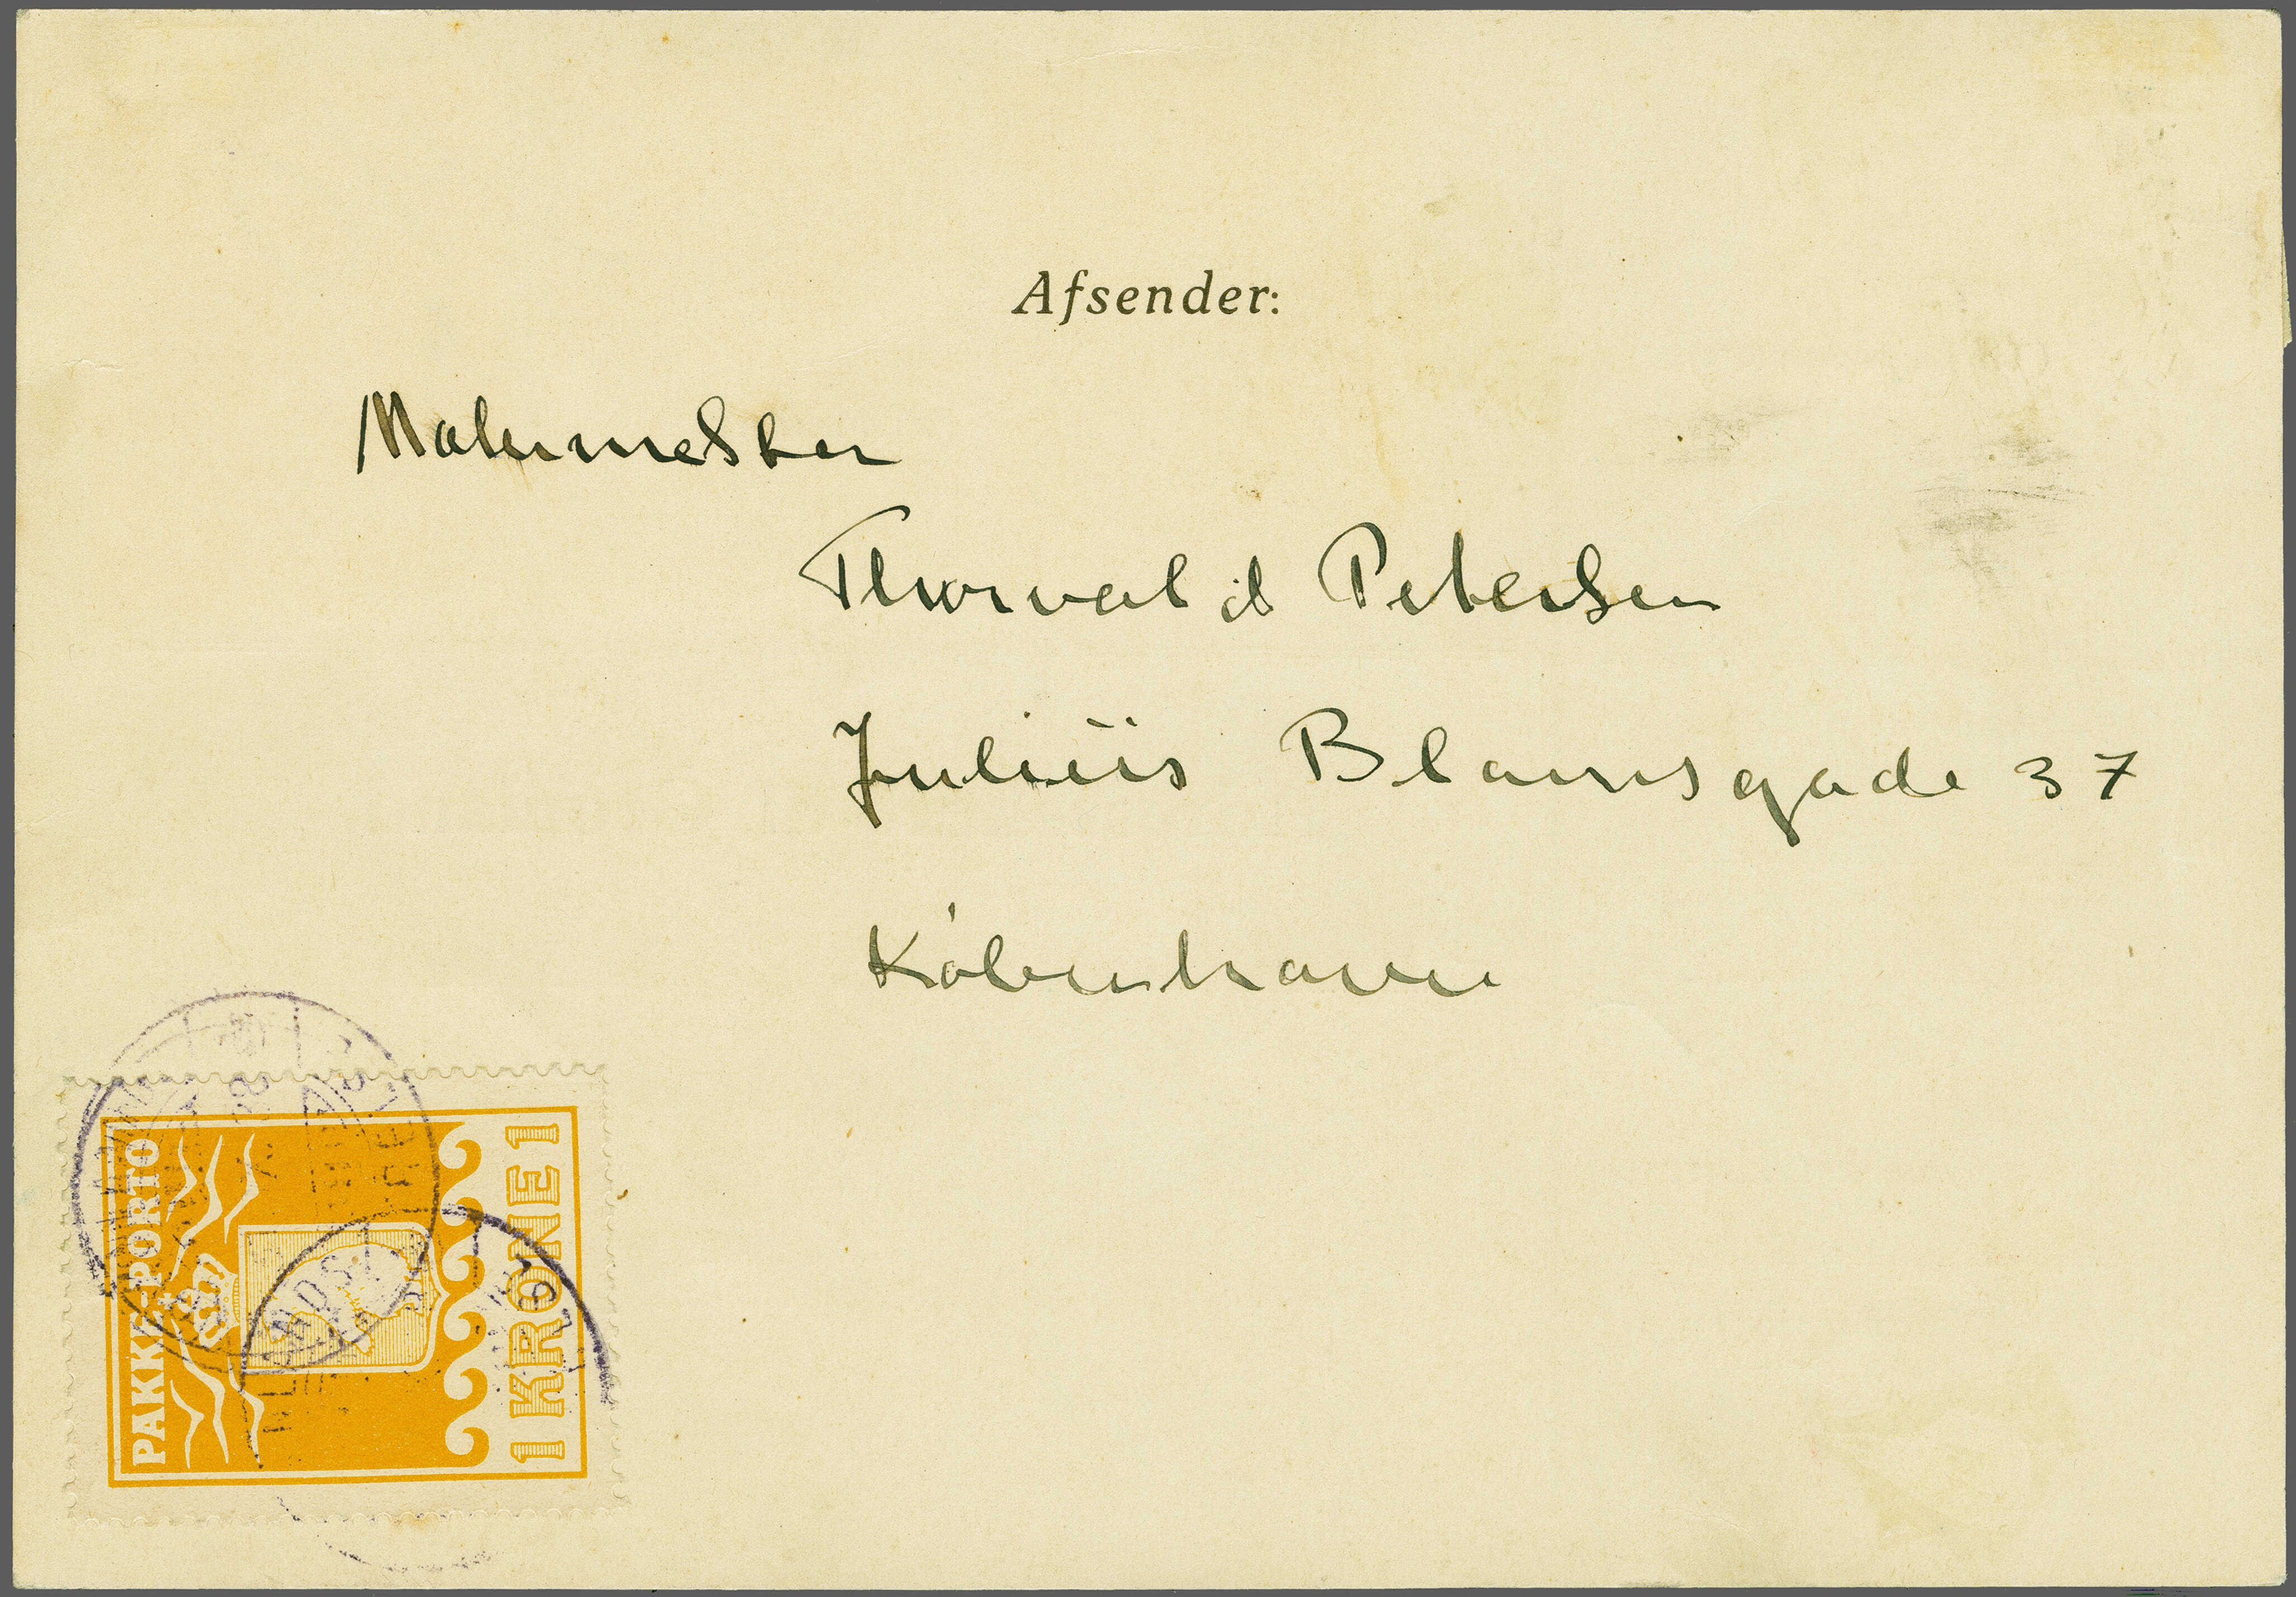 Afsender:
Malermester
Thorvald Petersen
Julius Blomsgade 37
København
PAKKE-PORTO
1 KRONE 1